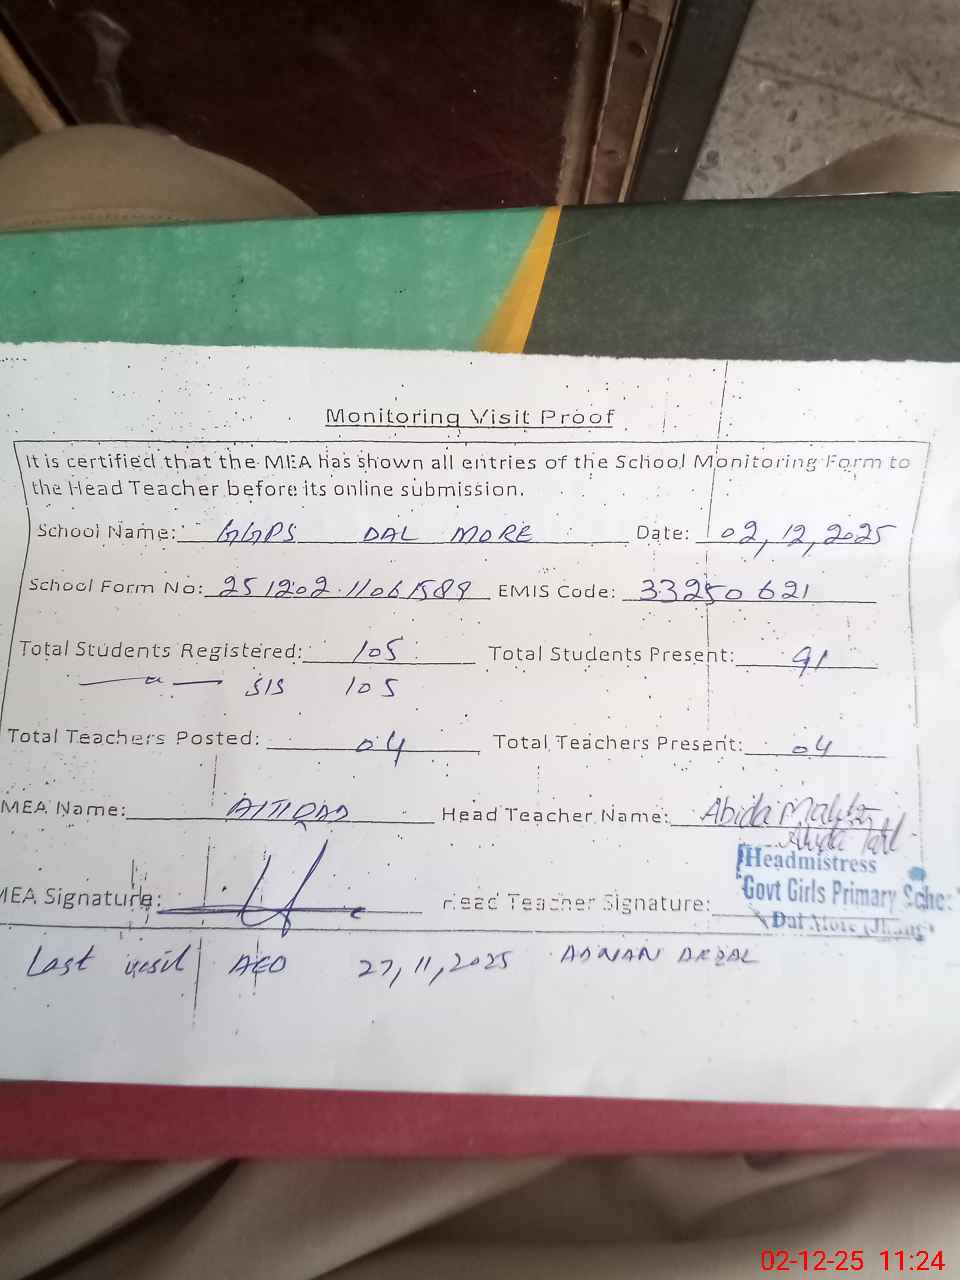 Monitoring Visit Proof
It is certified that the MEA has shown all entries of the School Monitoring Form to
the Head Teacher before its online submission.
School Name: GGPS DAL MORE Date: 02,12,2025
School Form No: 25120211061589 EMIS Code: 33250621
Total Students Registered: 105 Total Students Present: 91
SIS 105
Total Teachers Posted: 04 Total Teachers Present: 04
MEA Name: Head Teacher Name: Abida
Headmistress
MEA Signature: Head Teacher Signature: Govt Girls Primary
Dal More (Jhang)
Last visit AEO 27,11,2025 ADNAN
02-12-25 11:24